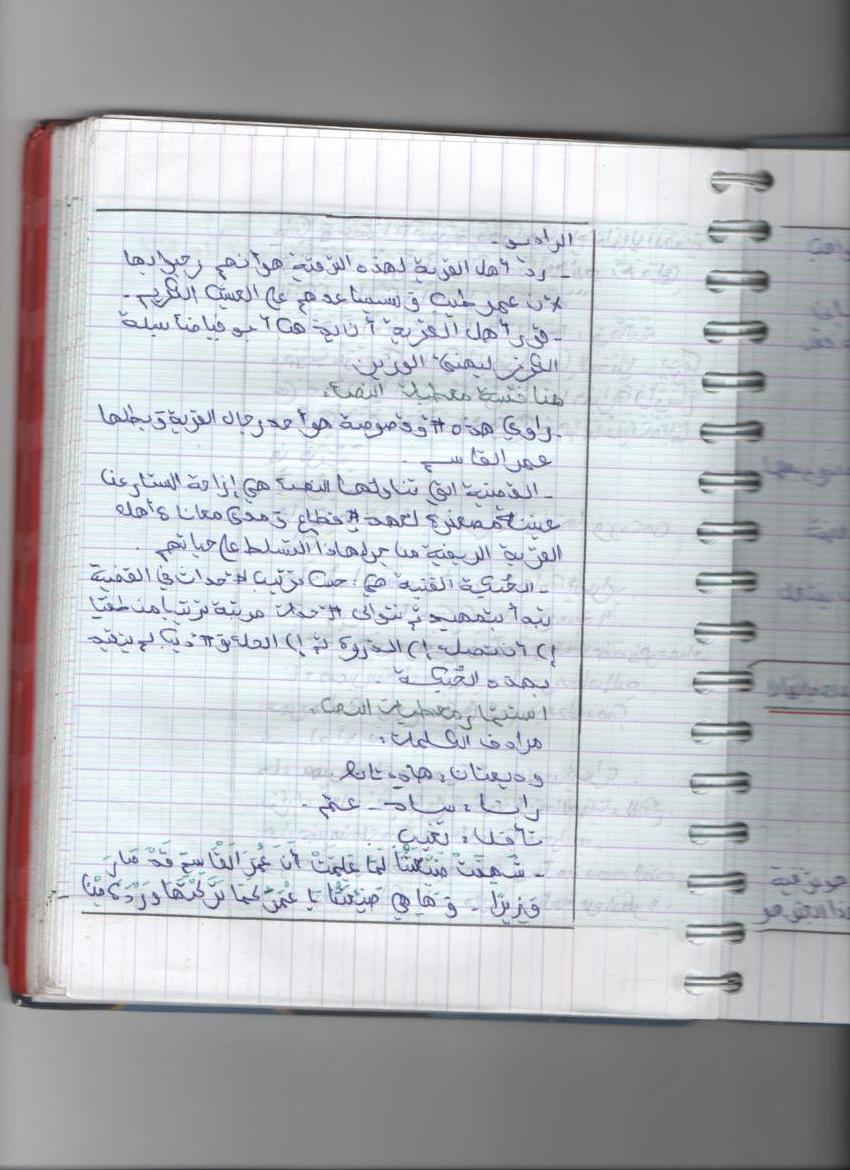 الراديو.
- ردّ أهل القرية لهذه الترقية هو أنهم رحبوا بها
لأن عمر طيب وسيساعدهم على العيش الكريم.
- قرر أهل القرية إنابة هنا أبو فياض سيلة
العرض ليهنئ الوزير
مناقشة معطيات النص:
- راوي هذه الأقصوصة هو أحد رجال القرية وبطلها
عمر القاسم.
- القضية التي تناولها النص هي إزاحة الستار عن
عينة مصغرة لعهد الإقطاع ومدى معاناة أهل
القرية الريفية من جراء هذا التسلط على حياتهم.
- الحبكة الفنية هي: حيث ترتيب الأحداث في القضية
تبدأ بتمهيد ثم تتوالى الأحداث مرتبة ترتيبا منطقيا
إلى أن تصل إلى الذروة ثم إلى الحل والأديب لم يتقيد
بهذه الحبكة
استثمار معطيات النص:
مرادف الكلمات:
وديعتان: هادئتان
ران: ساد - عمّ.
تأفل: تغيب
- شَهِقَتْ ضَيْعَتُنَا لَمَّا عَلِمَتْ أَنَّ عُمَرَ القَاسِمَ قَدْ صَارَ
وَزِيرًا - وَهَا هِيَ ضَيْعَتُنَا يَا عُمَرُ كَمَا تَرَكْتَهَا وَرْدَةٌ مِنْ